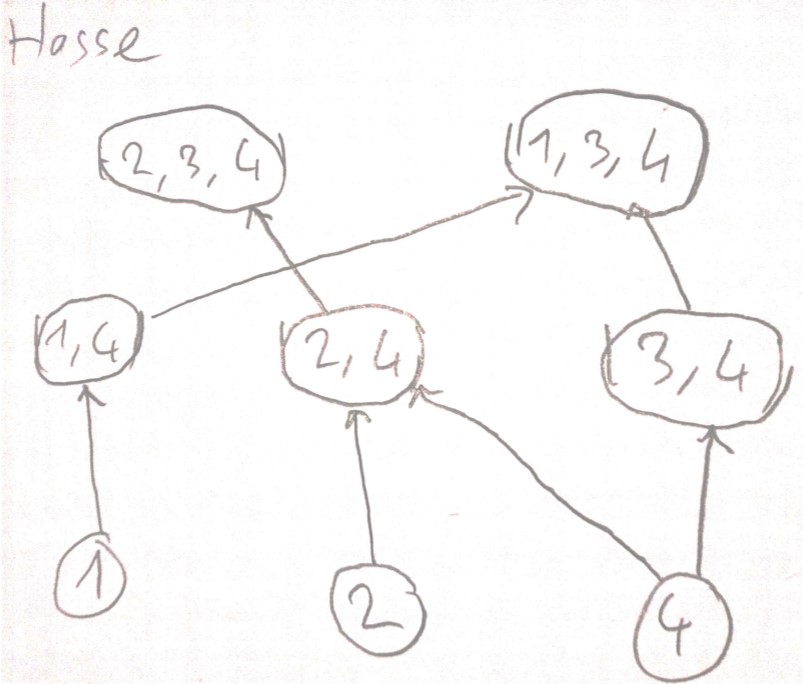 Hasse
2, 3, 4
1, 3, 4
1, 4
2, 4
3, 4
1
2
4